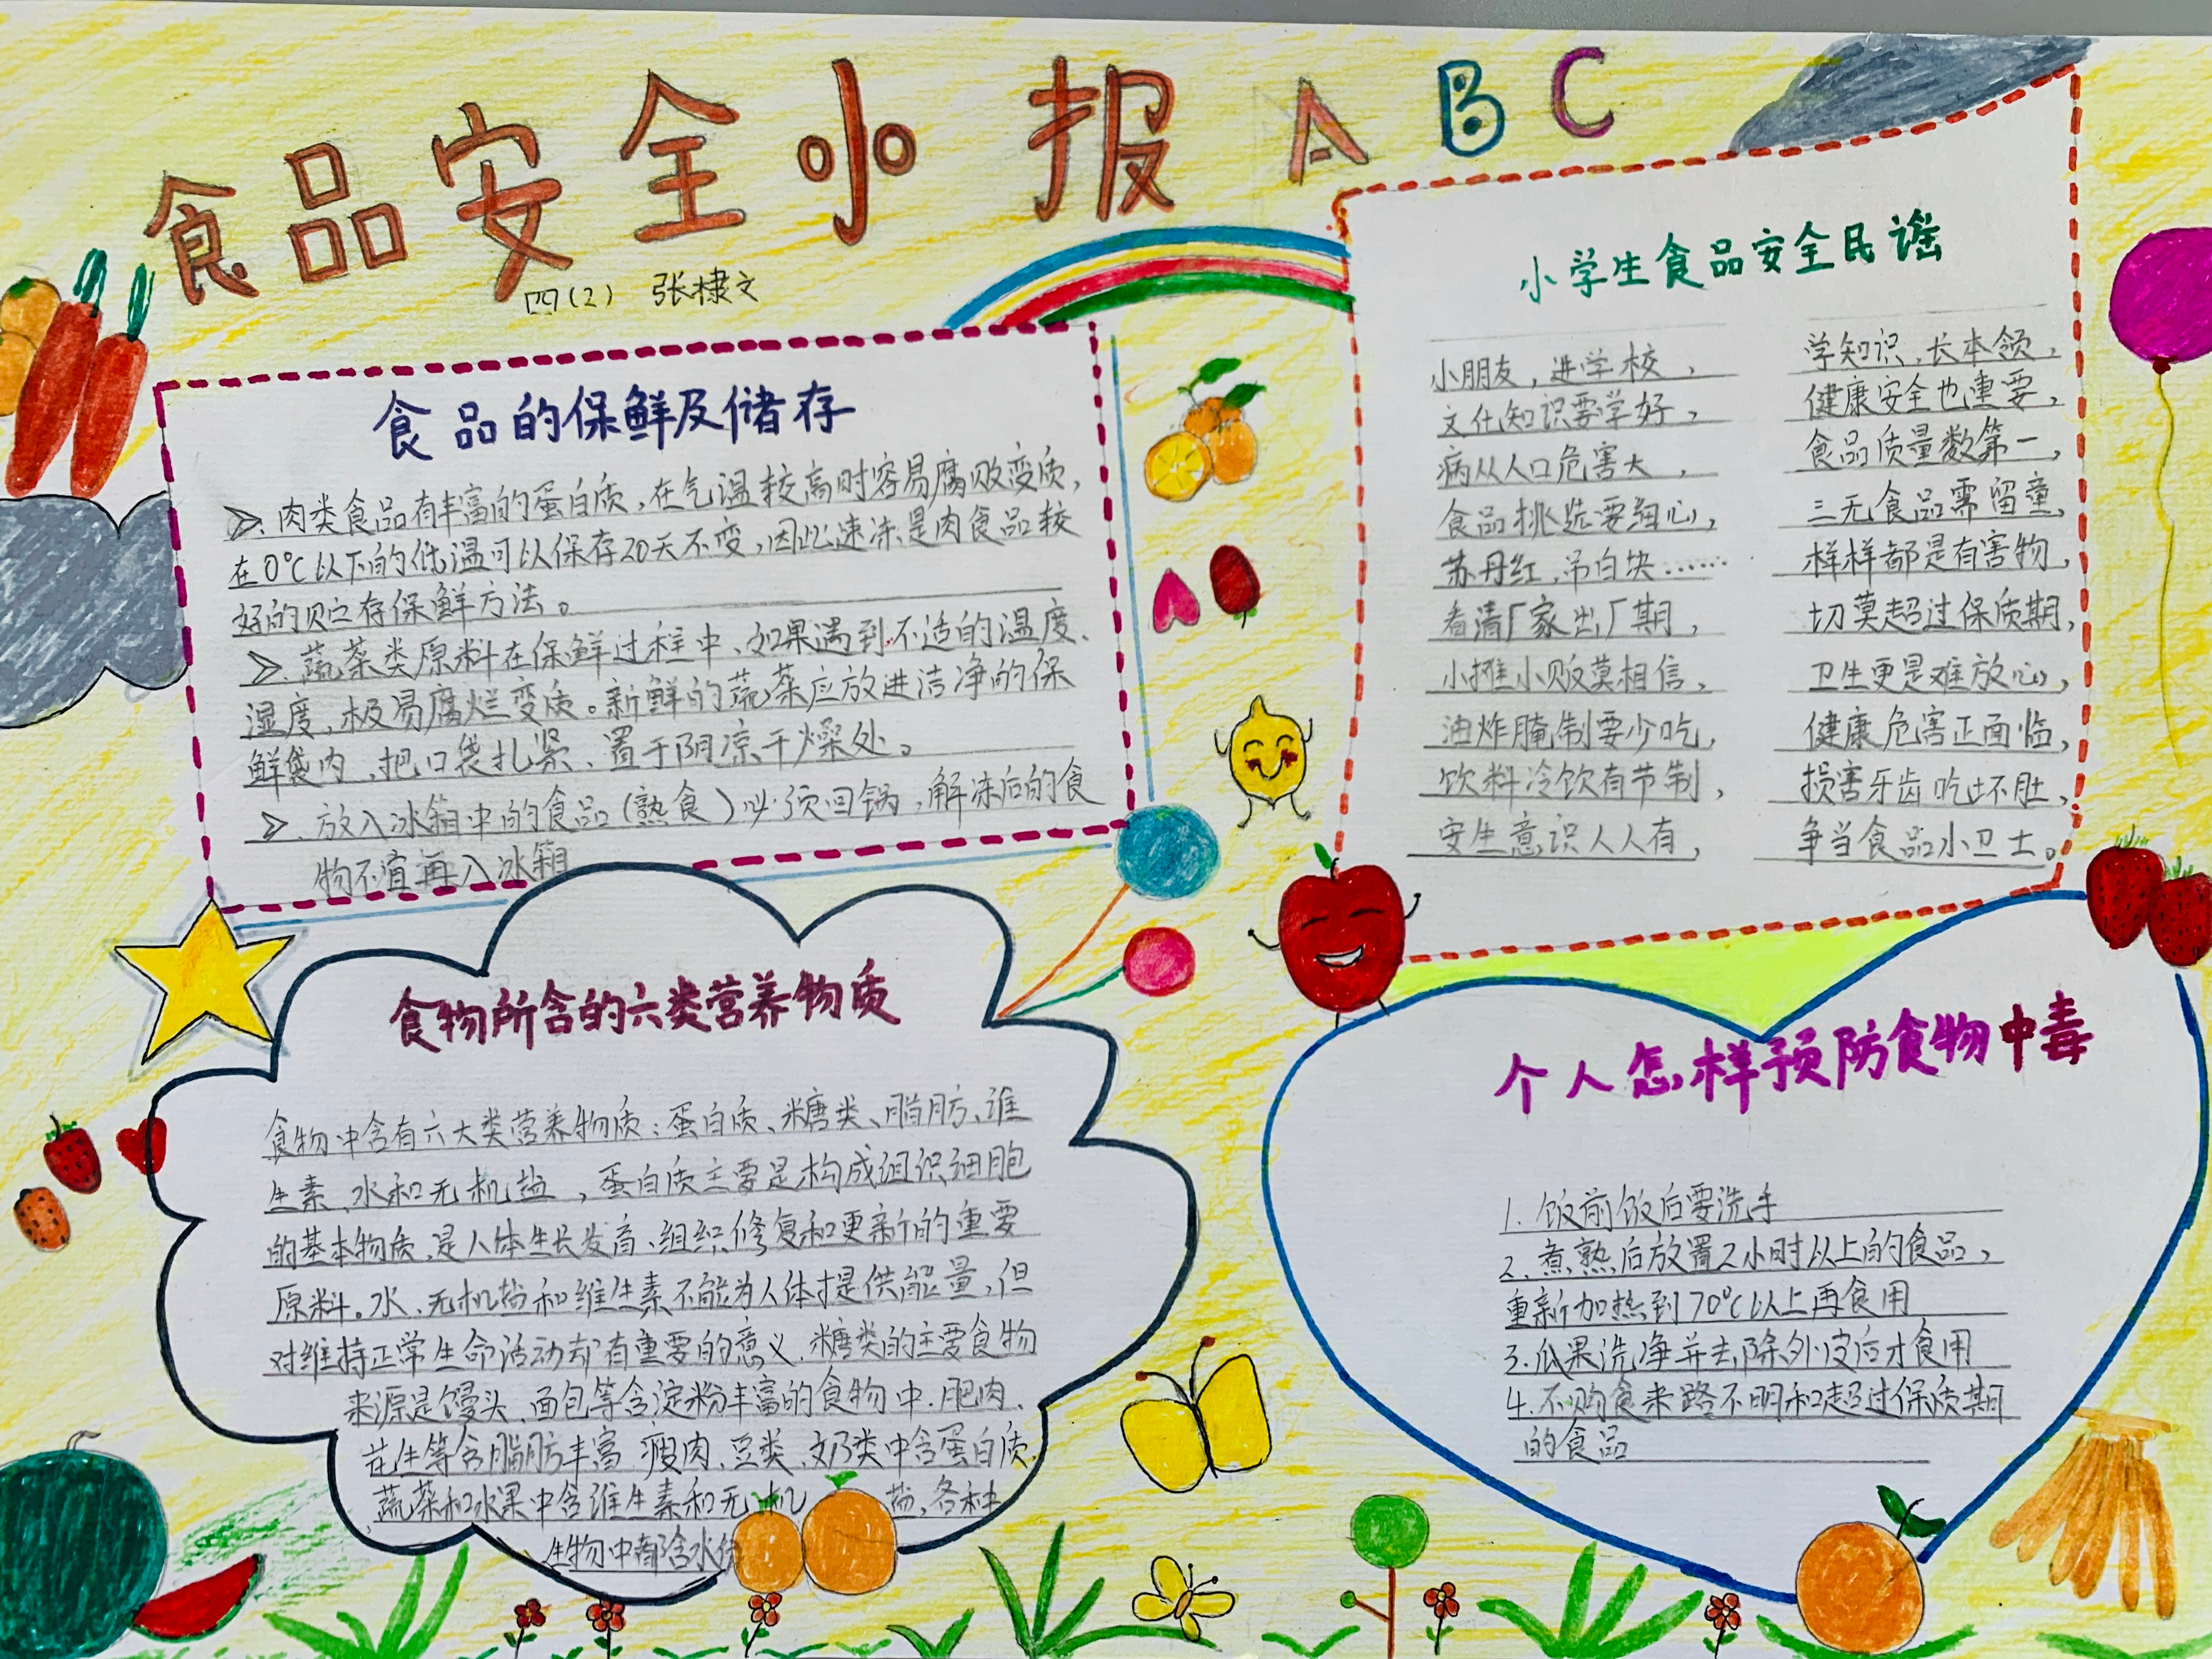 食品安全小报 A B C
四(2) 张棣文
食品的保鲜及储存
肉类食品有丰富的蛋白质,在气温较高时容易腐败变质,
在0℃以下的低温可以保存20天不变,因此速冻是肉食品较
好的贮存保鲜方法。
蔬菜类原料在保鲜过程中、如果遇到不适的温度、
湿度,极易腐烂变质。新鲜的蔬菜应放进洁净的保
鲜袋内,把口袋扎紧、置于阴凉干燥处。
放入冰箱中的食品(熟食)必须回锅,解冻后的食
物不宜再入冰箱
小学生食品安全民谣
小朋友,进学校,
文化知识要学好,
病从人口危害大,
食品挑选要细心,
苏丹红,吊白块……
看清厂家出厂期,
小摊小贩莫相信,
油炸腌制要少吃,
饮料冷饮有节制,
安生意识人人有,
学知识,长本领,
健康安全也重要,
食品质量数第一,
三无食品需留童,
样样都是有害物,
切莫超过保质期,
卫生更是难放心,
健康危害正面临,
损害牙齿吃坏肚,
争当食品小卫士。
食物所含的六类营养物质
食物中含有六大类营养物质:蛋白质、糖类、脂肪、维
生素、水和无机盐,蛋白质主要是构成组织细胞
的基本物质,是人体生长发育、组织修复和更新的重要
原料。水、无机盐和维生素不能为人体提供能量,但
对维持正常生命活动却有重要的意义.糖类的主要食物
来源是馒头、面包等含淀粉丰富的食物中.肥肉、
花生等含脂肪丰富 瘦肉、豆类、奶类中含蛋白质,
蔬菜和水果中含维生素和无机盐,各种
生物中都含水份
个人怎样预防食物中毒
1. 饭前饭后要洗手
2. 煮熟后放置2小时以上的食品,
重新加热到70℃以上再食用
3. 瓜果洗净并去除外皮后才食用
4. 不购食来路不明和超过保质期
的食品